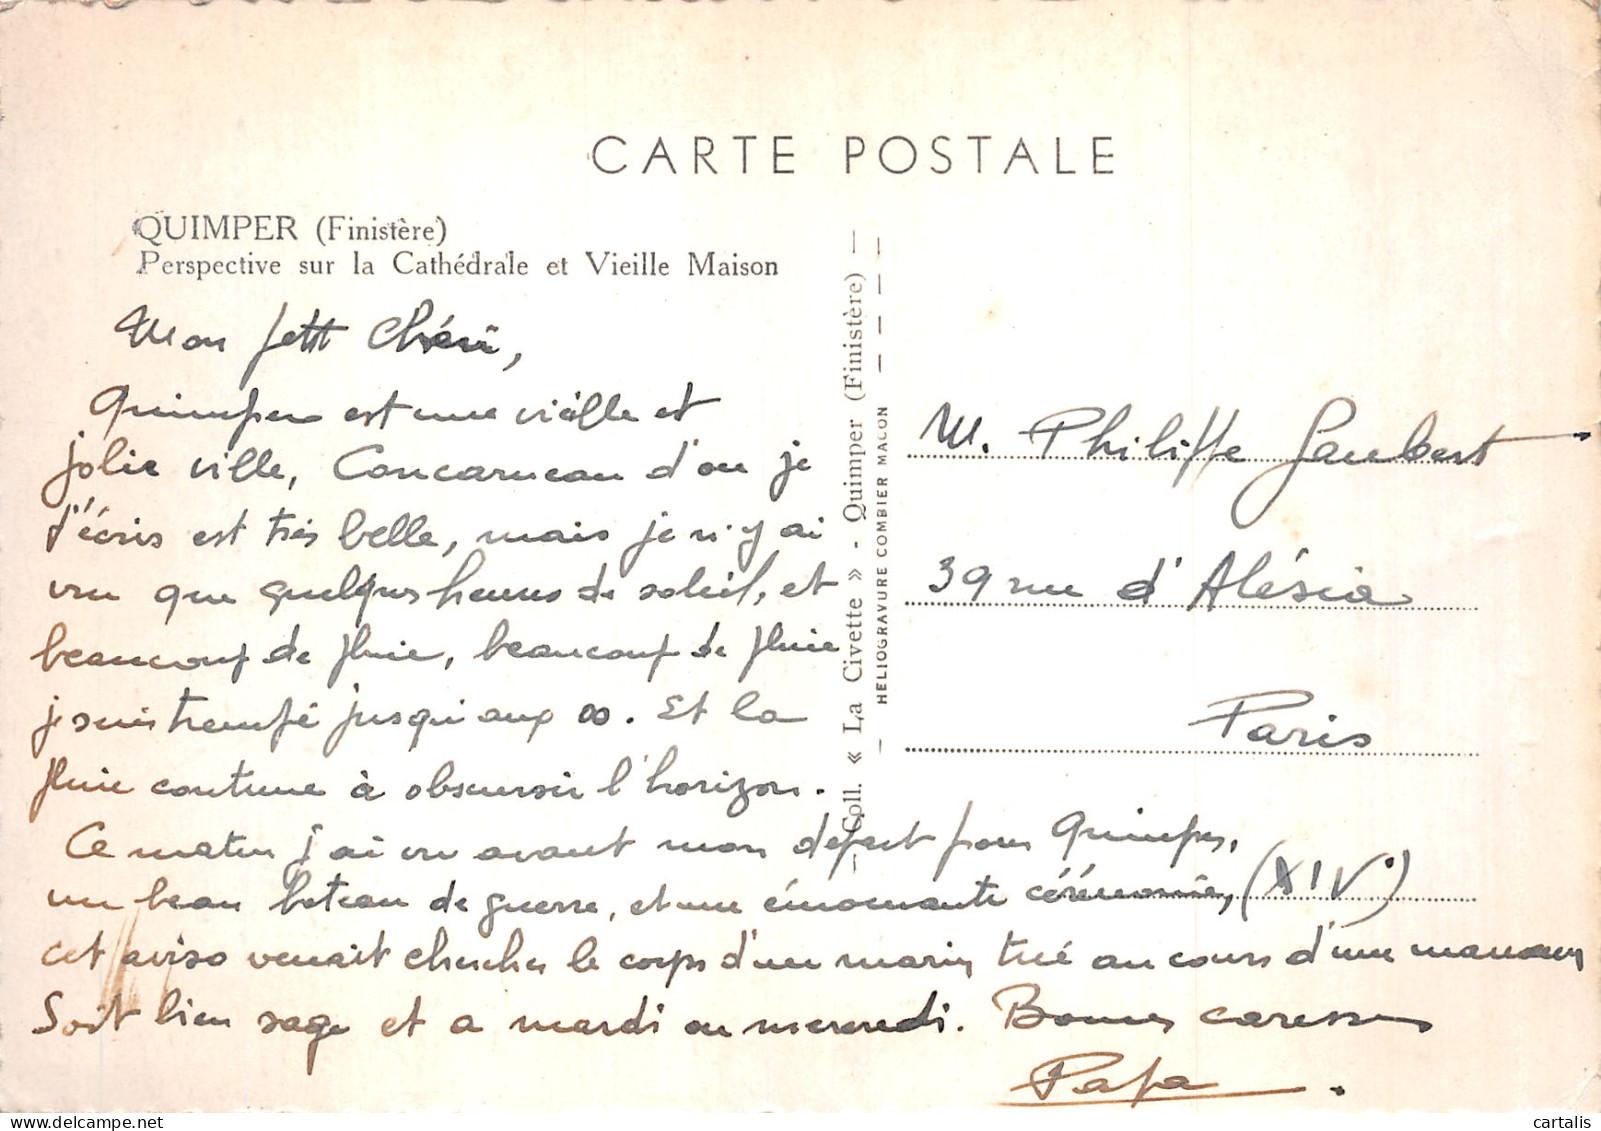 CARTE POSTALE
QUIMPER (Finistère)
Perspective sur la Cathédrale et Vieille Maison
Mon petit Chéri,
Quimper est une vieille et
jolie ville, Concarneau d'ou je
t'écris est très belle, mais je n'y ai
vu que quelques heures de soleil, et
beaucoup de pluie, beaucoup de pluie
je suis trempé jusqu'aux os. Et la
pluie continue à obscurcir l'horizon.
Ce matin j'ai vu avant mon départ pour Quimper,
un beau bateau de guerre, et une émouvante cérémonie, (XIV°)
cet aviso venait chercher le corps d'un marin tué au cours d'une manœuv
Soit bien sage et a mardi ou mercredi. Bonnes caresses
Papa
Coll. « La Civette » - Quimper (Finistère)
HELIOGRAVURE COMBIER MACON
M. Philippe Gaubert
39 rue d'Alésia
Paris
cartalis